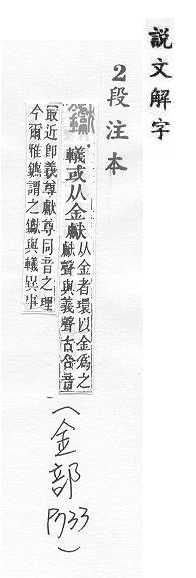 說文解字
2段注本
钀
轙或从金獻
从金者環以金為之
獻聲與義聲古合音
最近即義尊獻尊同音之理
今爾雅鑣謂之钀與轙異事
(金部 P733)